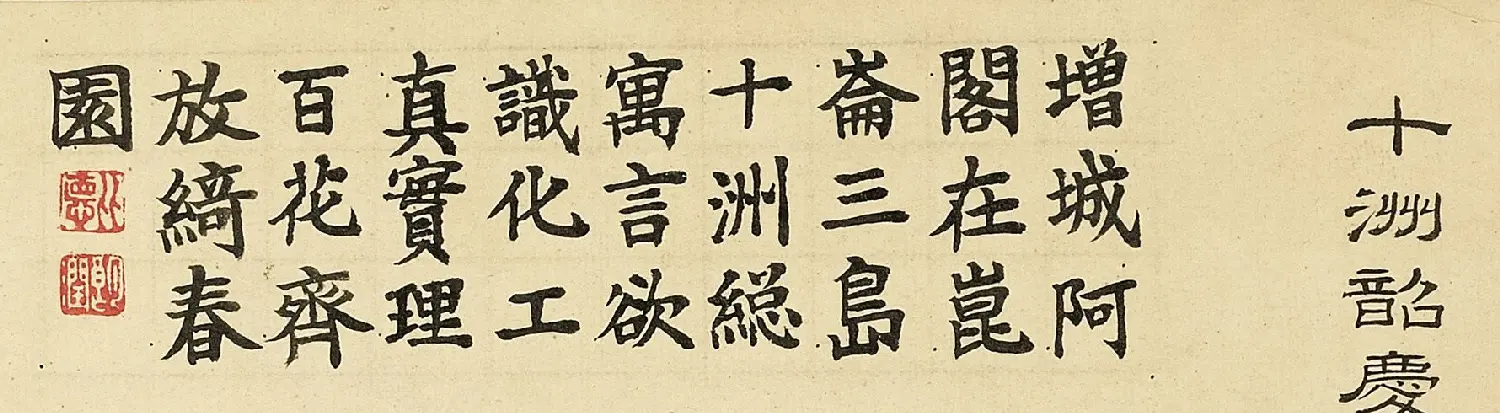 十洲韶慶
增城阿
閣在崑
崙三島
十洲緫
寓言欲
識化工
真實理
百花齊
放綺春
園
比德
朗潤